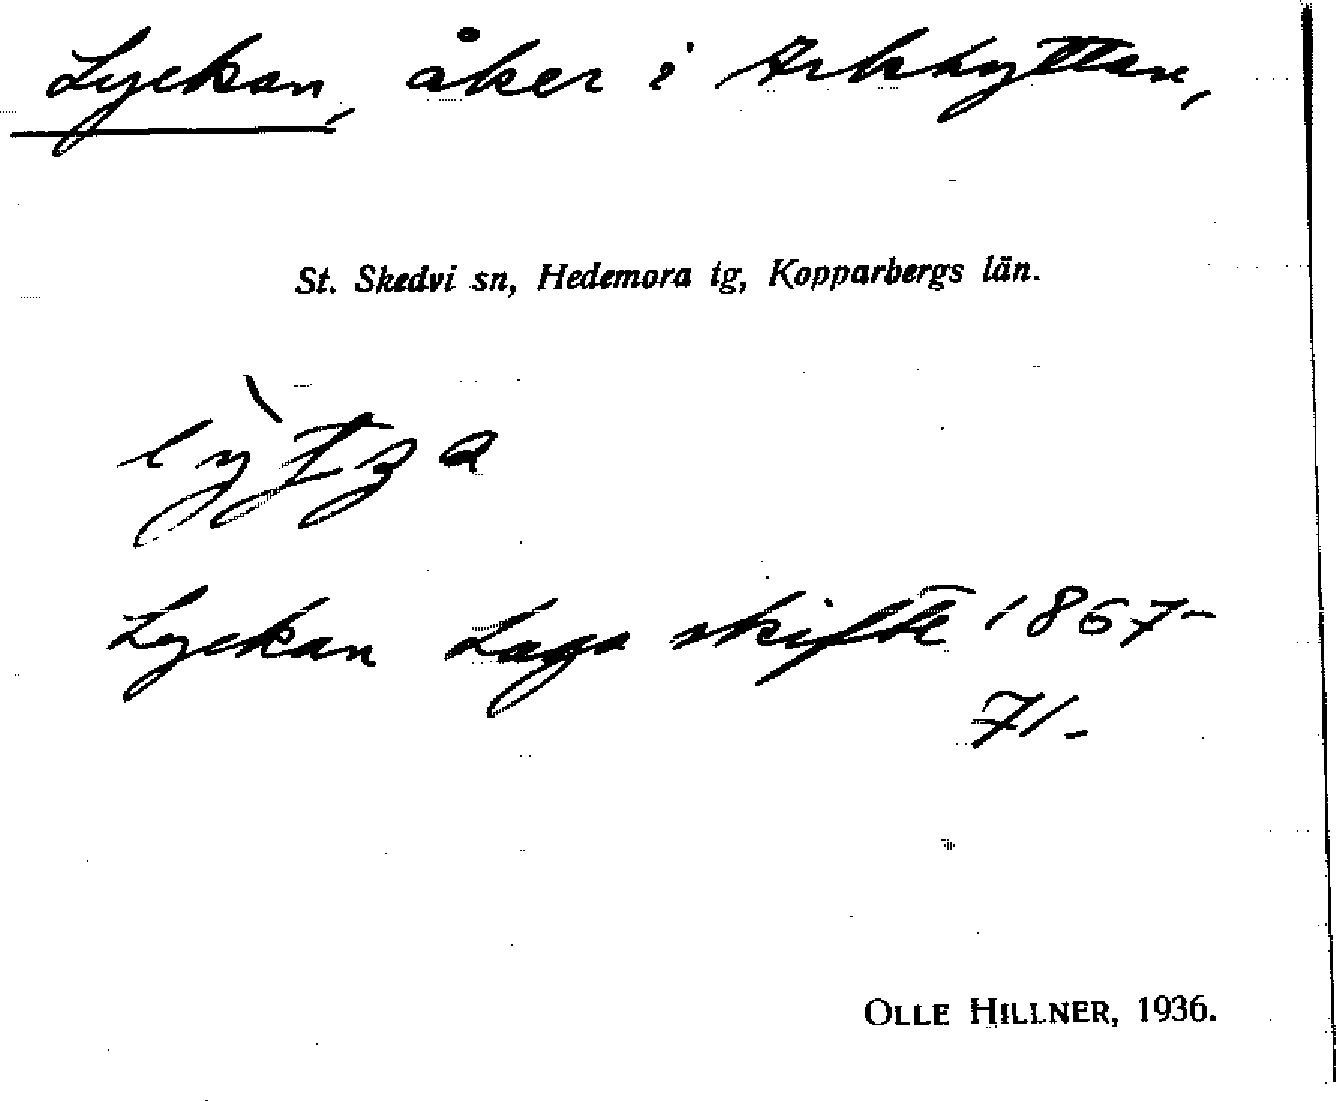 Lyckan, åker i Arkhyttan,
St. Skedvi sn, Hedemora tg, Kopparbergs län.
Lyckan Laga skifte 1867-
71-
OLLE HILLNER, 1936.